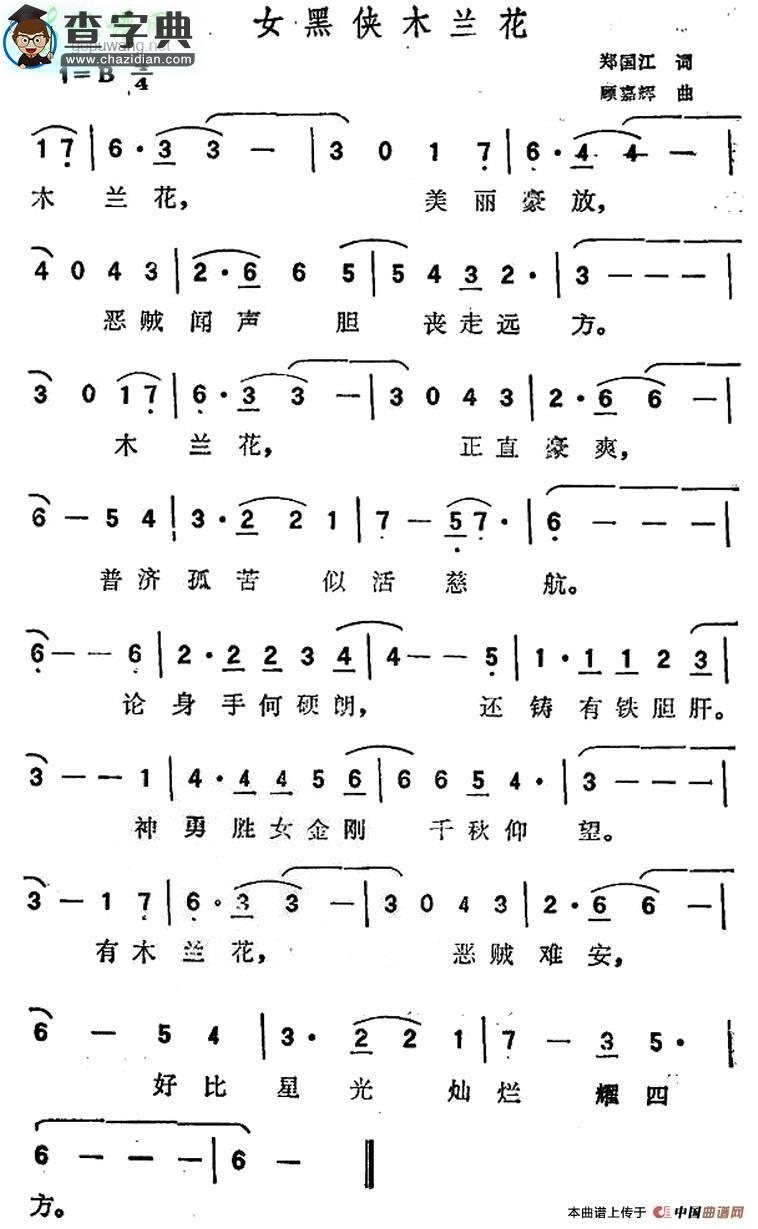 女黑侠木兰花
查字典
www.chazidian.com
1=B 4/4
郑国江 词
顾嘉辉 曲
1 7 | 6 · 3 3 — | 3 0 1 7 | 6 · 4 4 — |
木 兰 花, 美 丽 豪 放,
4 0 4 3 | 2 · 6 6 5 | 5 4 3 2 · | 3 — — — |
恶 贼 闻 声 胆 丧 走 远 方。
3 0 1 7 | 6 · 3 3 — | 3 0 4 3 | 2 · 6 6 — |
木 兰 花, 正 直 豪 爽,
6 — 5 4 | 3 · 2 2 1 | 7 — 5 7 · | 6 — — — |
普 济 孤 苦 似 活 慈 航。
6 — — 6 | 2 · 2 2 3 4 | 4 — — 5 | 1 · 1 1 2 3 |
论 身 手 何 硕 朗, 还 铸 有 铁 胆 肝。
3 — — 1 | 4 · 4 4 5 6 | 6 6 5 4 · | 3 — — — |
神 勇 胜 女 金 刚 千 秋 仰 望。
3 — 1 7 | 6 · 3 3 — | 3 0 4 3 | 2 · 6 6 — |
有 木 兰 花, 恶 贼 难 安,
6 — 5 4 | 3 · 2 2 1 | 7 — 3 5 · |
好 比 星 光 灿 烂 耀 四
6 — — — | 6 — ‖
方。
本曲谱上传于 中国曲谱网